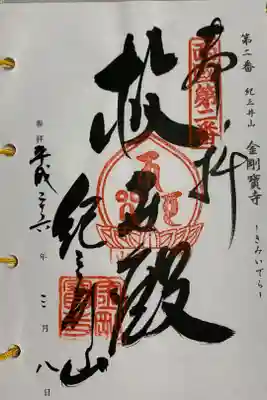 第二番 紀三井山 金剛寶寺
ーきみいでらー
奉拝
西国第二番
救世殿
紀三井山
参拝 平成二十六年三月八日